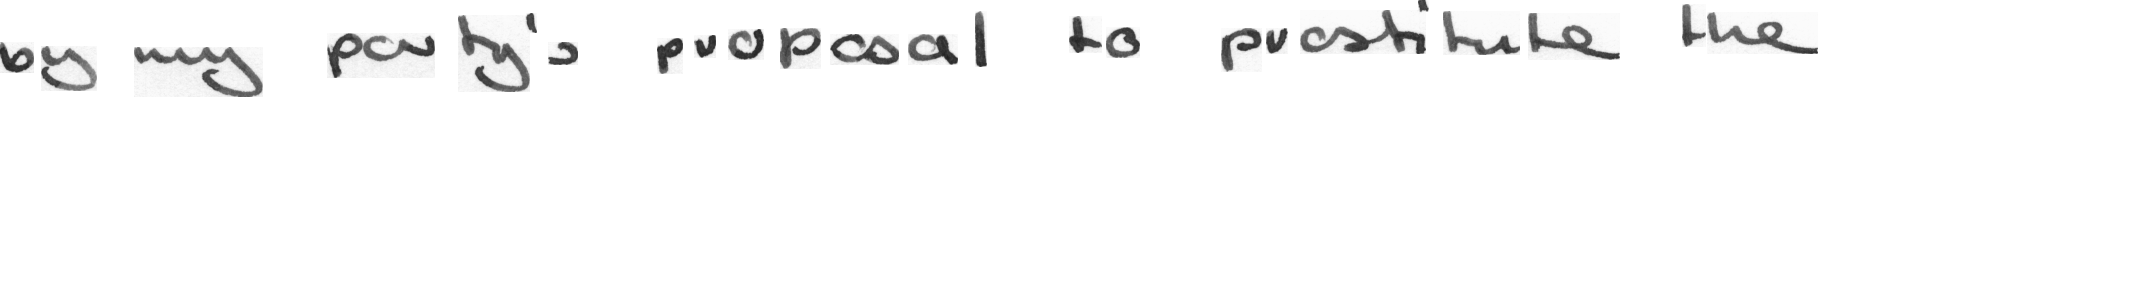 by my party's proposal to prostitute the